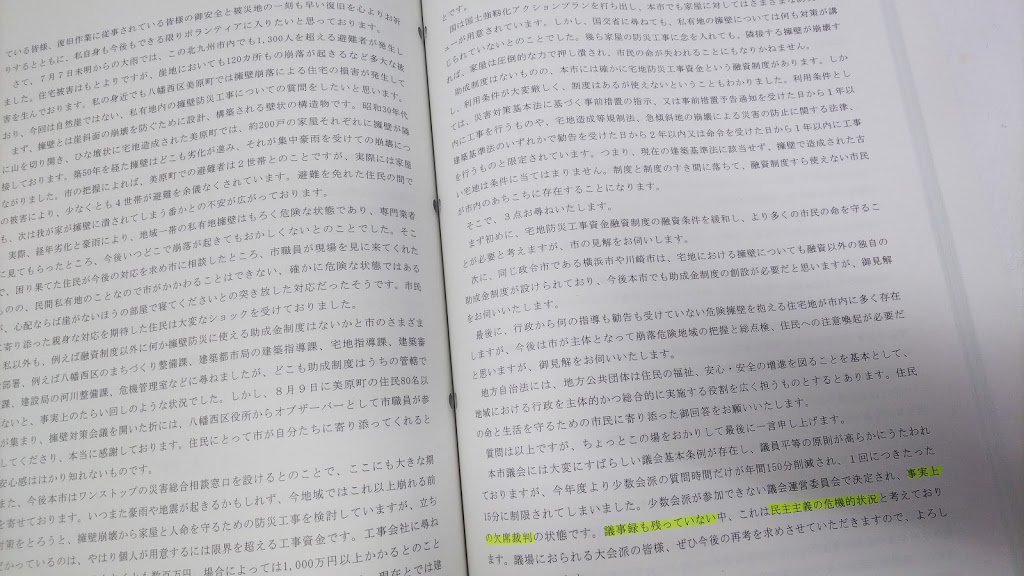 ている皆様、復旧作業に従事されている皆様の御安全と被災地の一刻も早い復旧を心よりお祈
りするとともに、私自身も今後もできる限りボランティアに入りたいと思っております。
さて、7月7日未明からの大雨では、この北九州市内でも1,300人を超える避難者が発生し
ました。住宅被害はもとよりですが、崖地においても120カ所もの崩落が起きるなど多大な被
害を生んでおります。私の身近でも八幡西区美原町では擁壁崩落による住宅の損害が発生して
おり、今回は自然崖ではない、私有地内の擁壁防災工事についての質問をしたいと思います。
まず、擁壁とは崖斜面の崩壊を防ぐために設計、構築される壁状の構造物です。昭和30年代
に山を切り開き、ひな壇状に宅地造成された美原町では、約200戸の家屋それぞれに擁壁が隣
接しております。築50年を経た擁壁はどこも劣化が進み、それが集中豪雨を受けての崩壊につ
ながりました。市の把握によれば、美原町での避難者は2世帯とのことですが、実際には家屋
の被害により、少なくとも4世帯が避難を余儀なくされています。避難を免れた住民の間で
も、次は我が家が擁壁に潰されてしまう番かとの不安が広がっております。
実際、経年劣化と豪雨により、地域一帯の私有地擁壁はもろく危険な状態であり、専門業者
に見てもらったところ、今後いつどこで崩落が起きてもおかしくないとのことでした。そこ
で、困り果てた住民が今後の対応を求め市に相談したところ、市職員が現場を見に来てくれた
ものの、民間私有地のことなので市がかかわることはできない、確かに危険な状態ではある
が、心配ならば崖がないほうの部屋で寝てくださいとの突き放した対応だったそうです。市民
に寄り添った親身な対応を期待した住民は大変なショックを受けておりました。
私以外も、例えば融資制度以外に何か擁壁防災に使える助成金制度はないかと市のさまざま
な部署、例えば八幡西区のまちづくり整備課、建築都市局の建築指導課、宅地指導課、建築審
課、建設局の河川整備課、危機管理室などに尋ねましたが、どこも助成制度はうちの管轄で
ないと、事実上のたらい回しのような状況でした。しかし、8月9日に美原町の住民80名以
が集まり、擁壁対策会議を開いた折には、八幡西区役所からオブザーバーとして市職員が参
してくださり、本当に感謝しております。住民にとって市が自分たちに寄り添ってくれると
安心感ははかり知れないものです。
また、今後本市はワンストップの災害総合相談窓口を設けるとのことで、ここにも大きな期
を寄せております。いつまた豪雨や地震が起きるかもしれず、今地域ではこれ以上崩れる前
対策をとろうと、擁壁崩壊から家屋と人命を守るための防災工事を検討していますが、立ち
かっているのは、やはり個人が費用するには限界を超える工事資金です。工事会社に尋ね
数百万円、場合によっては1,000万円以上かかるとのこと
とです。
国は国土強靱化アクションプランを打ち出し、本市でも家屋に対してはさまざまな
ューが用意されています。しかし、国交省に尋ねても、私有地の擁壁については何も対策が講
じられていないとのことでした。幾ら家屋の防災工事に念を入れても、隣接する擁壁が崩壊す
れば、家屋は圧倒的な力で押し潰され、市民の命が失われることにもなりかねません。
助成制度はないものの、本市には確かに宅地防災工事資金という融資制度があります。しか
し、利用条件が大変厳しく、制度はあるが使えないということもわかりました。利用条件とし
ては、災害対策基本法に基づく事前措置の指示、又は事前措置予告通知を受けた日から1年以
内に工事を行うものや、宅地造成等規制法、急傾斜地の崩壊による災害の防止に関する法律、
建築基準法のいずれかで勧告を受けた日から2年以内又は命令を受けた日から1年以内に工事
を行うものと限定されています。つまり、現在の建築基準法に該当せず、擁壁で造成された古
い宅地は条件に当てはまりません。制度と制度のすき間に落ちて、融資制度すら使えない市民
が市内のあちこちに存在することになります。
そこで、3点お尋ねいたします。
まず初めに、宅地防災工事資金融資制度の融資条件を緩和し、より多くの市民の命を守るこ
とが必要と考えますが、市の見解をお伺いします。
次に、同じ政令市である横浜市や川崎市は、宅地における擁壁についても融資以外の独自の
助成金制度が設けられており、今後本市でも助成金制度の創設が必要だと思いますが、御見解
をお伺いいたします。
最後に、行政から何の指導も勧告も受けていない危険擁壁を抱える住宅地が市内に多く存在
しますが、今後は市が主体となって崩落危険地域の把握と総点検、住民への注意喚起が必要だ
と思いますが、御見解をお伺いいたします。
地方自治法には、地方公共団体は住民の福祉、安心・安全の増進を図ることを基本として、
地域における行政を主体的かつ総合的に実施する役割を広く担うものとするとあります。住民
の命と生活を守るための市民に寄り添った御回答をお願いいたします。
質問は以上ですが、ちょっとこの場をおかりして最後に一言申し上げます。
本市議会には大変にすばらしい議会基本条例が存在し、議員平等の原則が高らかにうたわれ
ておりますが、今年度より少数会派の質問時間だけが年間150分削減され、1回につきたった
15分に制限されてしまいました。少数会派が参加できない議会運営委員会で決定され、事実上
の欠席裁判の状態です。議事録も残っていない中、これは民主主義の危機的状況と考えており
ます。議場におられる大会派の皆様、ぜひ今後の再考を求めさせていただきますので、よろし